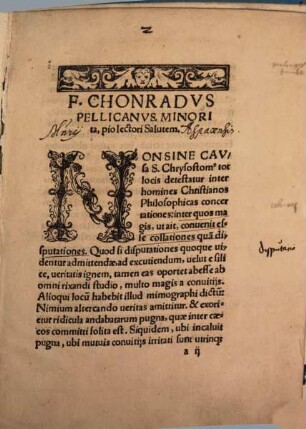 F. CHONRADVS
PELLICANVS. MINORI
ta, pio lectori Salutem.
NON SINE CAVſ
ſa S. Chryſoſtom⁹ tot
locis deteſtatur inter
homines Chriſtianos
Philoſophicas concer
tationes: inter quos ma
gis, ut ait, conuenit eſ
ſe collationes quã diſ
putationes. Quod ſi diſputationes quoque ui
dentur admittẽdæ ad excutiendum, velut e ſili
ce, veritatis ignem, tamen eas oportet abeſſe ab
omni rixandi ſtudio, multo magis a conuitijs.
Alioqui locũ habebit illud mimographi dictũ:
Nimium altercando veritas amittitur. & exori
etur ridicula andabatarum pugna, quæ inter cæ
cos committi ſolita eſt. Siquidem, ubi incaluit
pugna, ubi mutuis conuitijs irritati ſunt utrinq;
a ij